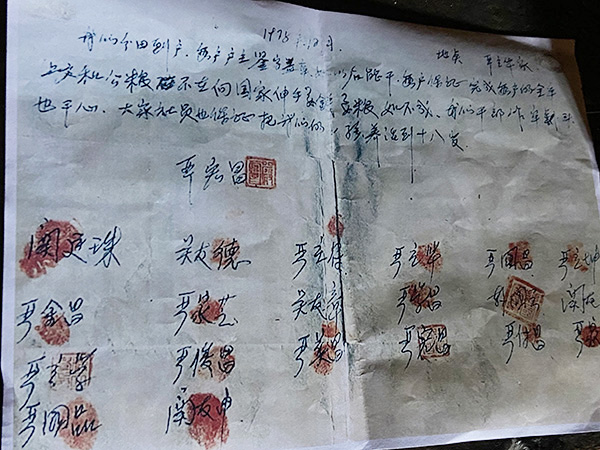 1978年12月 地点 严立华家
我们分田到户，每户户主签字盖章，如以后能干，每户保证完成每户的全年
上交和公粮 不在向国家伸手要钱要粮 如不成，我们干部作牢刹头
也干心，大家社员也保证把我们的小孩养活到十八岁
严宏昌
关廷珠 关友德 严立付 严立华 严国昌 严立坤
严金昌 严家芝 关友章 严学昌 韩 关友
严立学 严俊昌 严美昌 严宏昌 严付昌 严家
严国品 关友申